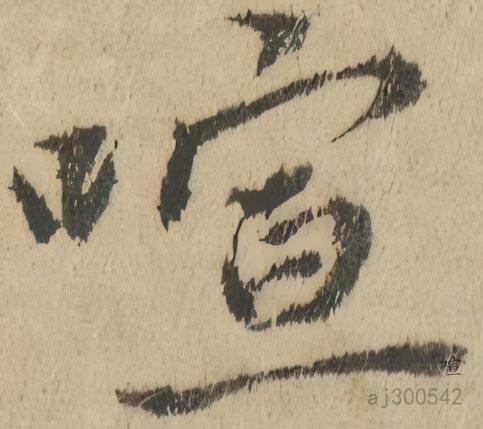 喧
喧
aj300542